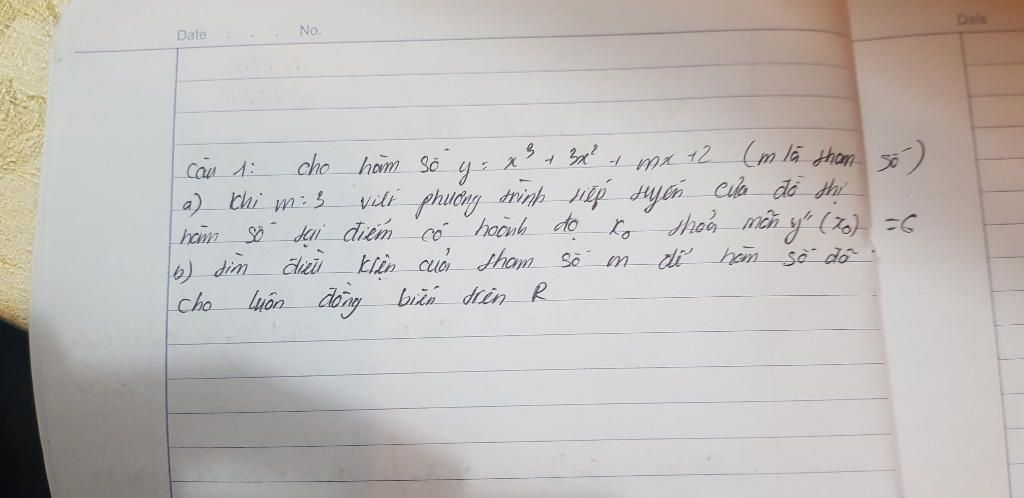 Date . . . No.
Date
Câu 1: cho hàm số y = x³ + 3x² + mx + 2 (m là tham số)
a) Khi m = 3 viết phương trình tiếp tuyến của đồ thị
hàm số tại điểm có hoành độ x₀ thoả mãn y"(x₀) = 6
b) tìm điều kiện của tham số m để hàm số đã
cho luôn đồng biến trên R